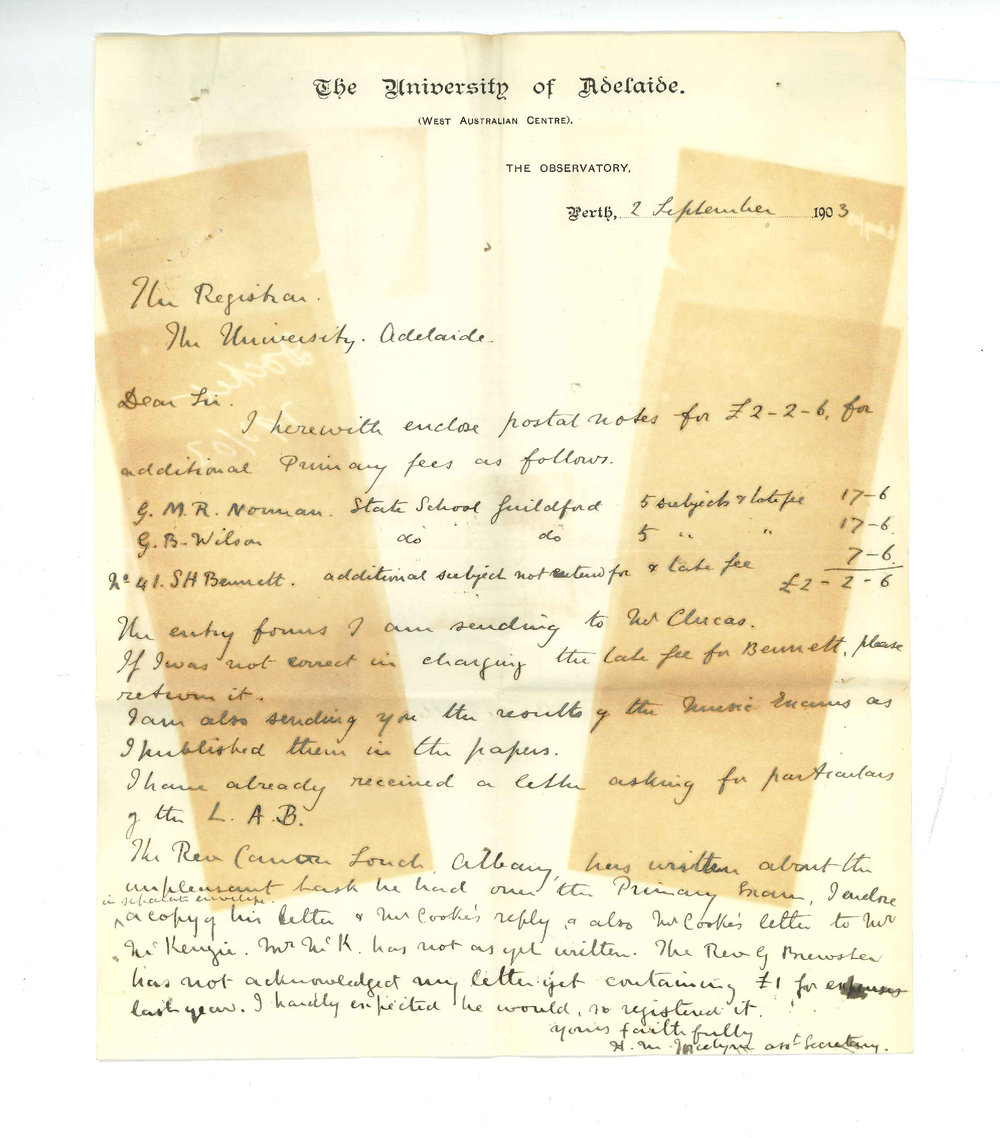 The University of Adelaide.
(WEST AUSTRALIAN CENTRE).
THE OBSERVATORY,
Perth, 2 September 1903
The Registrar.
The University. Adelaide.
Dear Sir.
I herewith enclose postal notes for £2-2-6, for
additional Primary fees as follows.
G. M. R. Norman. State School Guildford 5 subjects & late fee 17-6
G. B. Wilson do do 5 " " 17-6
No 41. S H Bennett. additional subject not entered for & late fee 7-6
£2-2-6
The entry forms I am sending to Mr Clucas.
If I was not correct in charging the late fee for Bennett, please
return it.
I am also sending you the results of the Music Exams as
I published them in the papers.
I have already received a letter asking for particulars
of the L. A. B.
The Rev Canon Louch, Albany, has written about the
unpleasant task he had over the Primary Exam, I enclose
in separate envelope.
a copy of his letter & Mr Cooke's reply, & also Mr Cooke's letter to Mr
McKenzie. Mr McK. has not as yet written. The Rev G Brewster
has not acknowledged my letter yet containing £1 for expenses
last year. I hardly expected he would, so registered it.
Yours faithfully
H. M. Jocelyn asst Secretary.